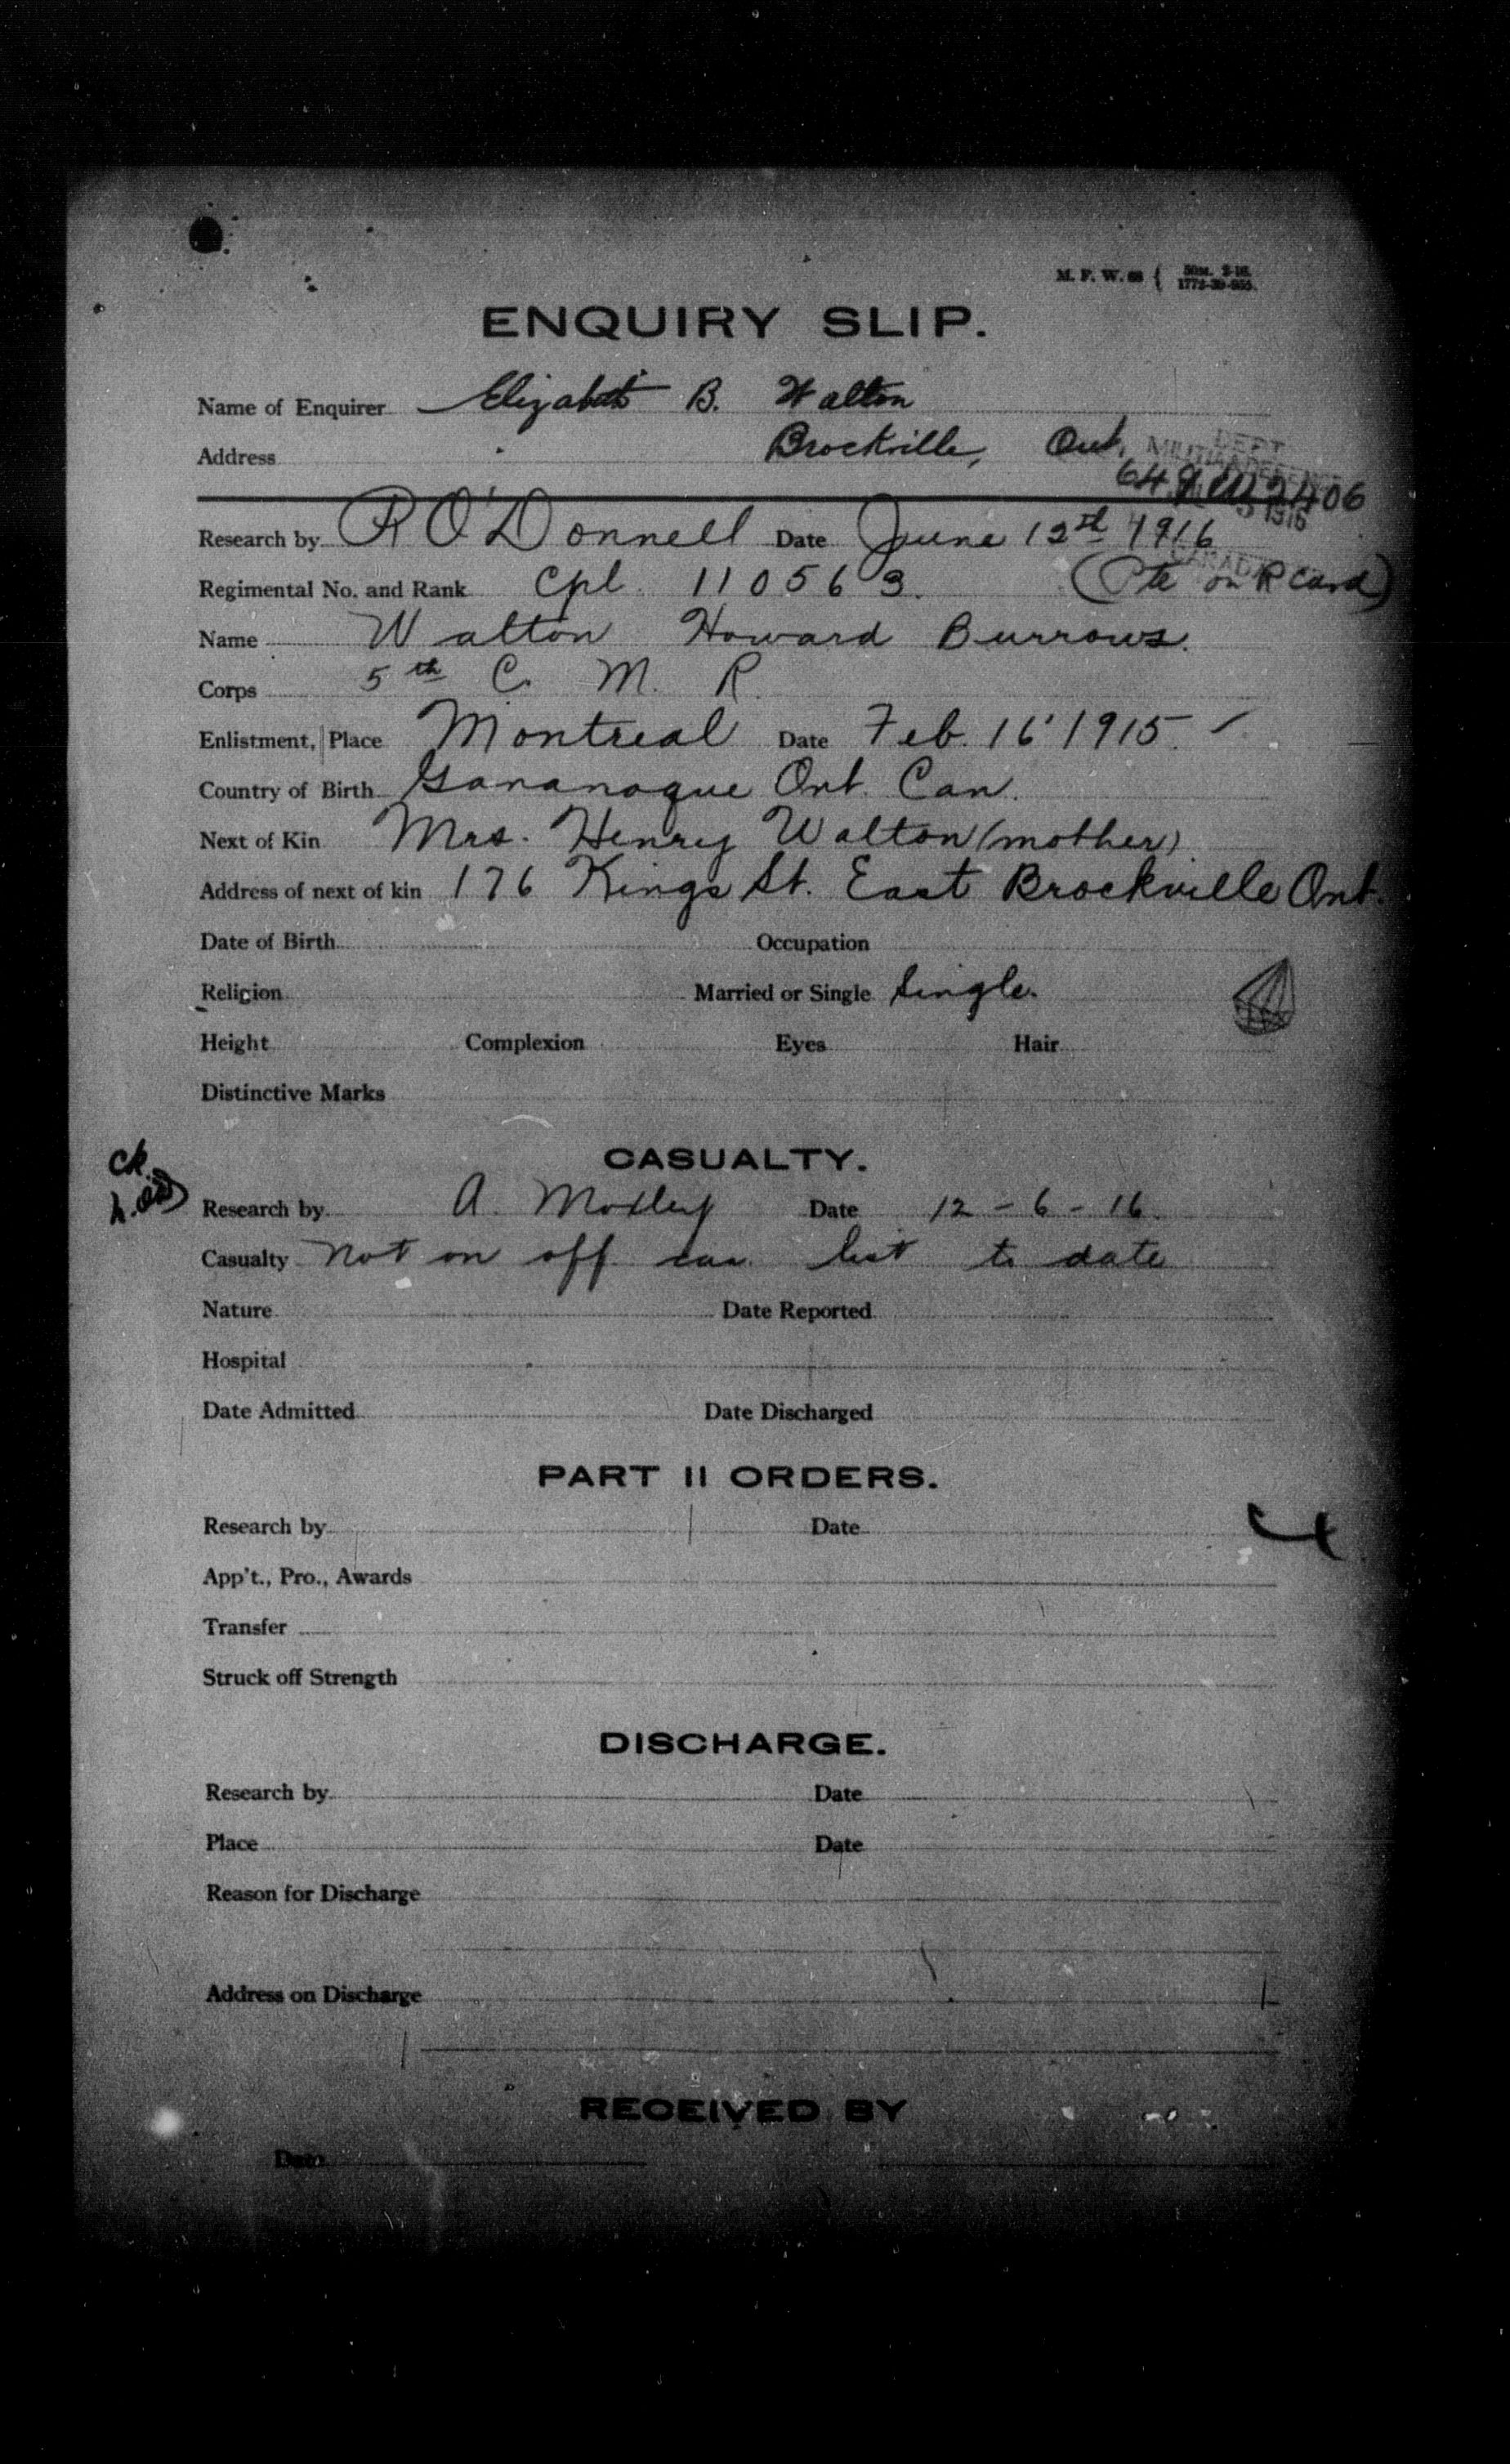 M. F. W. 68 { 50M. 2-16.
1772-39-
ENQUIRY SLIP.
Name of Enquirer Elizabeth B. Walton
Address Brockville, Ont.
DEPT
MILITIA & DEFENCE
1916
CANADA
Research by R O'Donnell Date June 12th 1916
Regimental No. and Rank Cpl. 110563. (Pte on R card)
Name Walton Howard Burrows.
Corps 5th C. M. R.
Enlistment, Place Montreal Date Feb. 16' 1915.
Country of Birth Gananoque Ont. Can.
Next of Kin Mrs. Henry Walton (mother)
Address of next of kin 176 Kings St. East Brockville Ont.
Date of Birth Occupation
Religion Married or Single Single.
Height Complexion Eyes Hair
Distinctive Marks
CASUALTY.
Ck.
Research by A. Moxley Date 12-6-16.
Casualty not on off cas. list to date
Nature Date Reported
Hospital
Date Admitted Date Discharged
PART II ORDERS.
Research by Date
App't., Pro., Awards
Transfer
Struck off Strength
DISCHARGE.
Research by Date
Place Date
Reason for Discharge
Address on Discharge
RECEIVED BY
Date